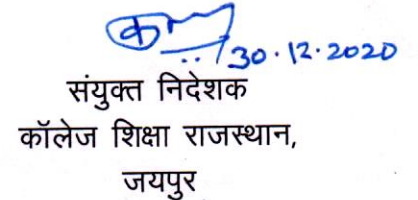 30.12.2020
संयुक्त निदेशक
कॉलेज शिक्षा राजस्थान,
जयपुर